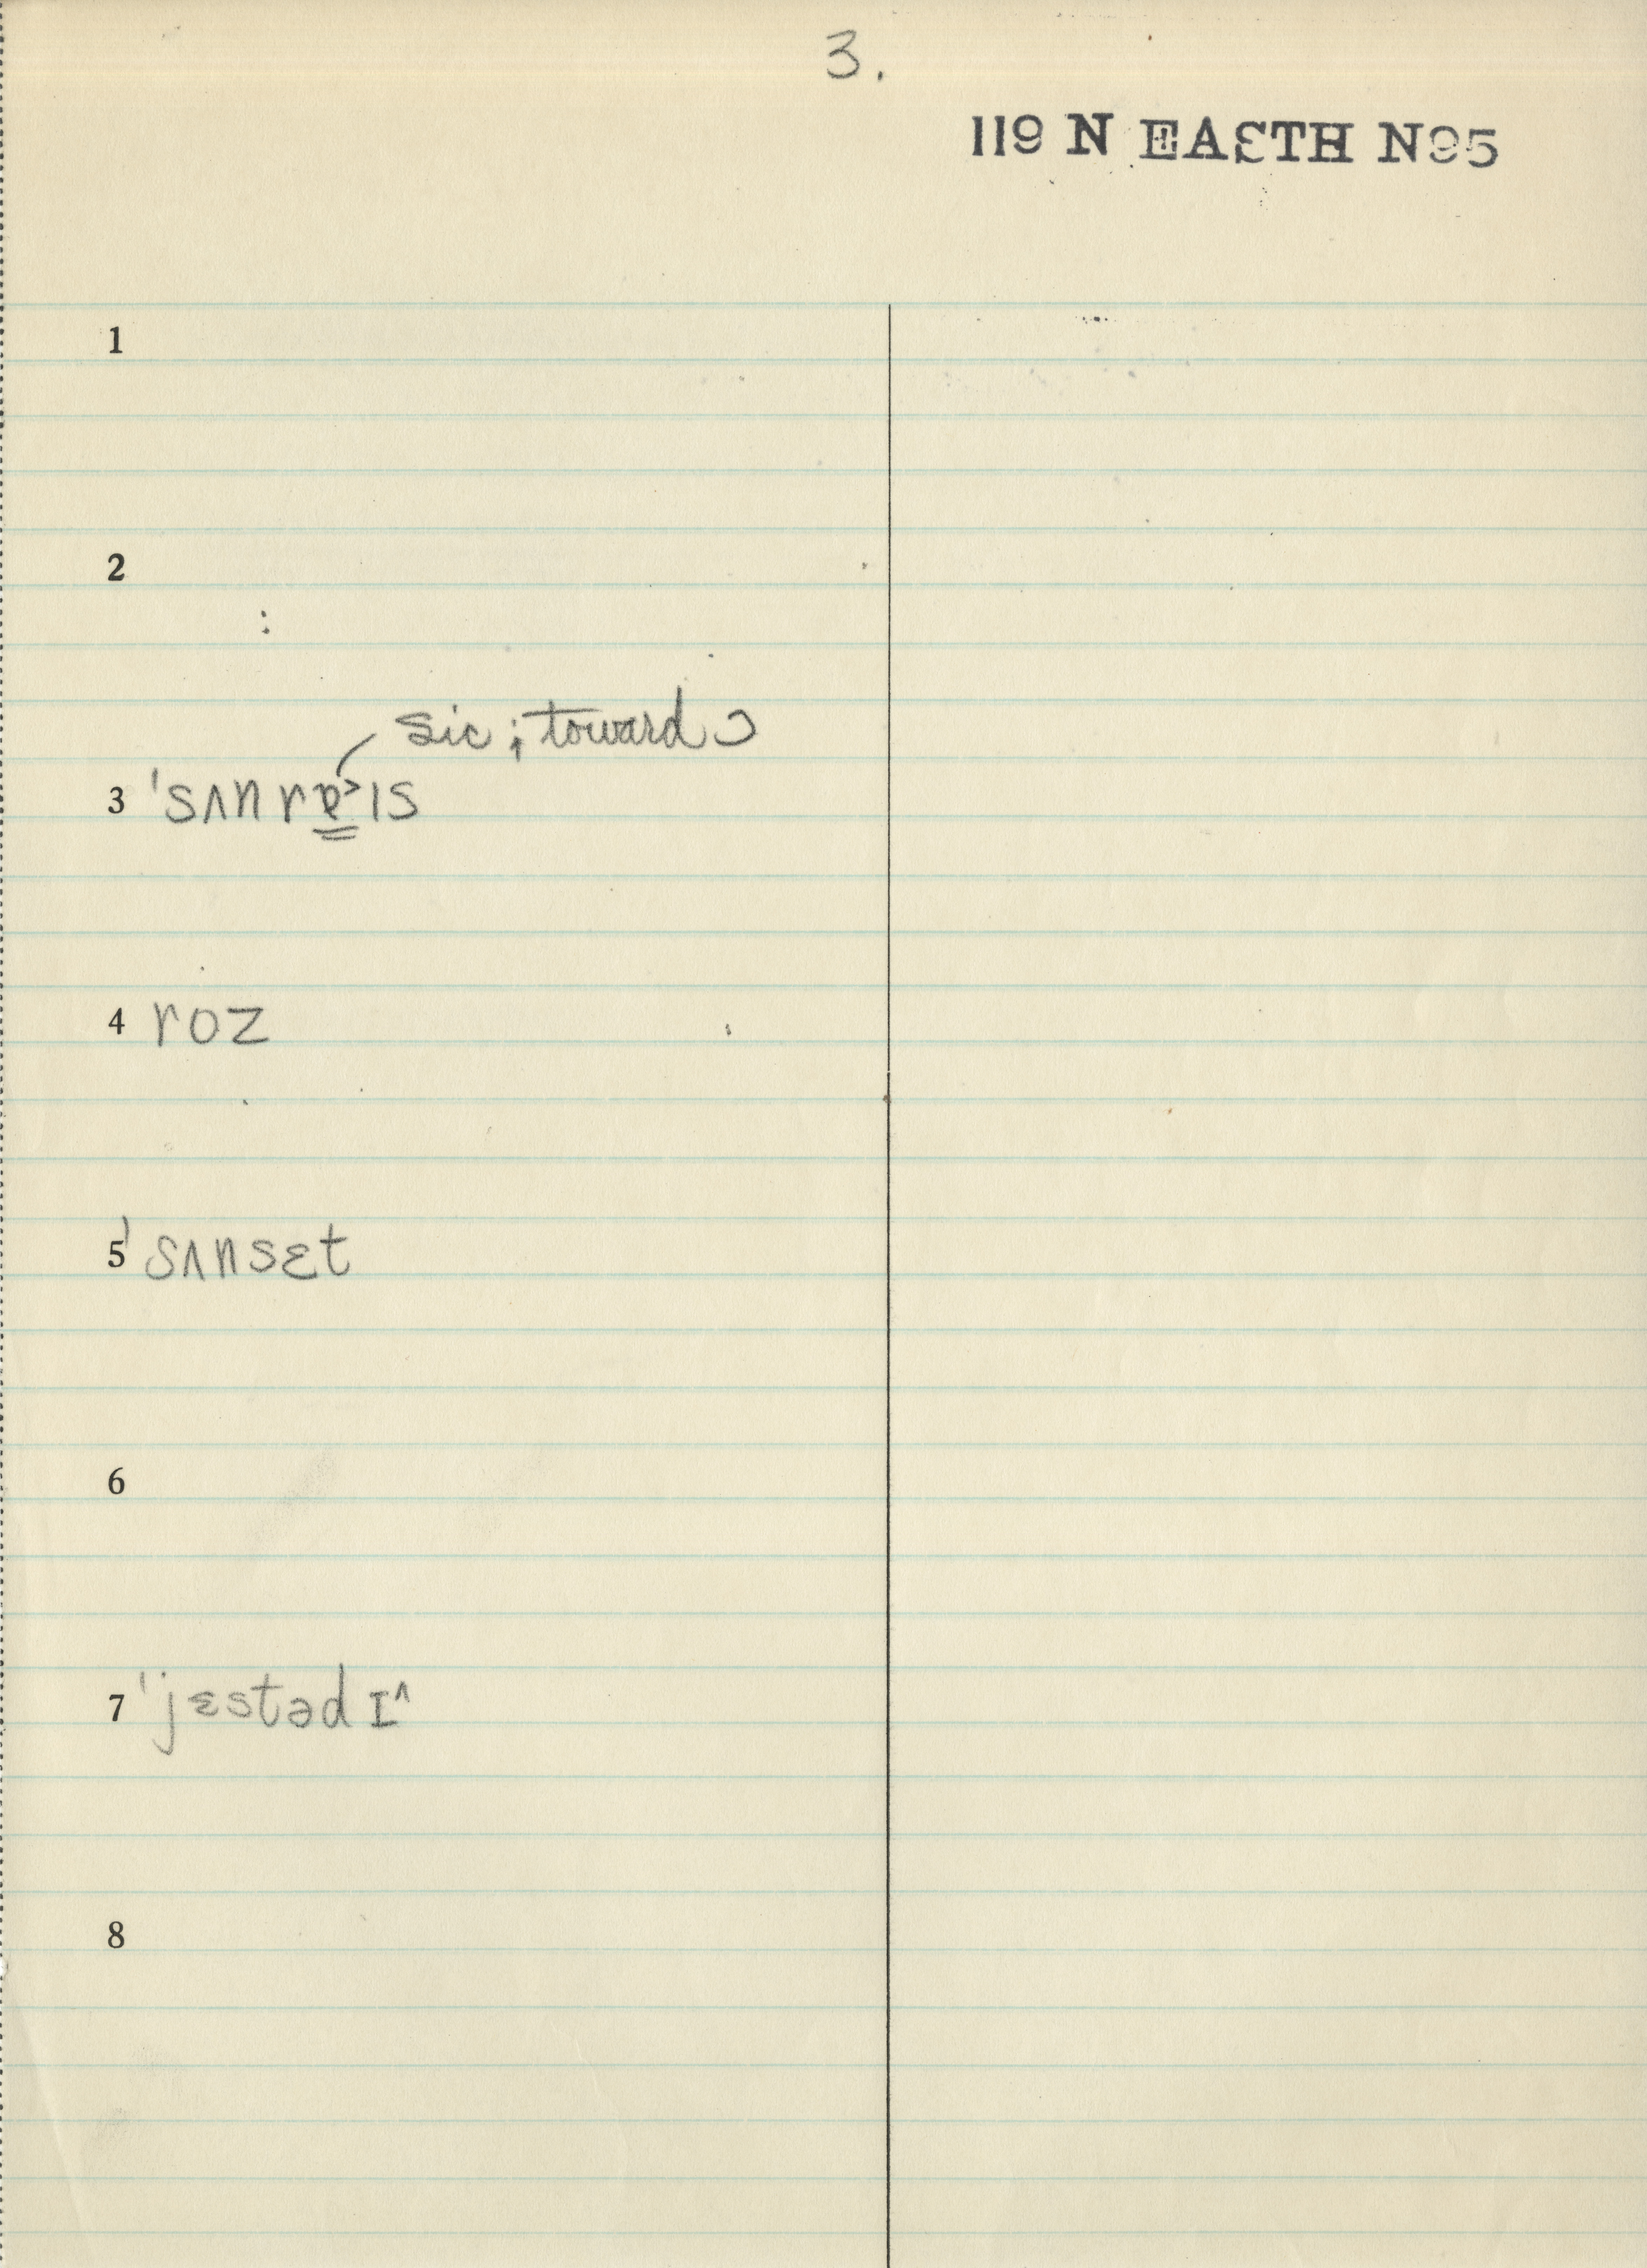 3.
119 N EAƐTH N95
1
2
sic; toward ɔ
3 ˈsʌnrɐ˃ɪs
4 roz
5 ˈsʌnsɛt
6
7 ˈjɛstədɪ^
8